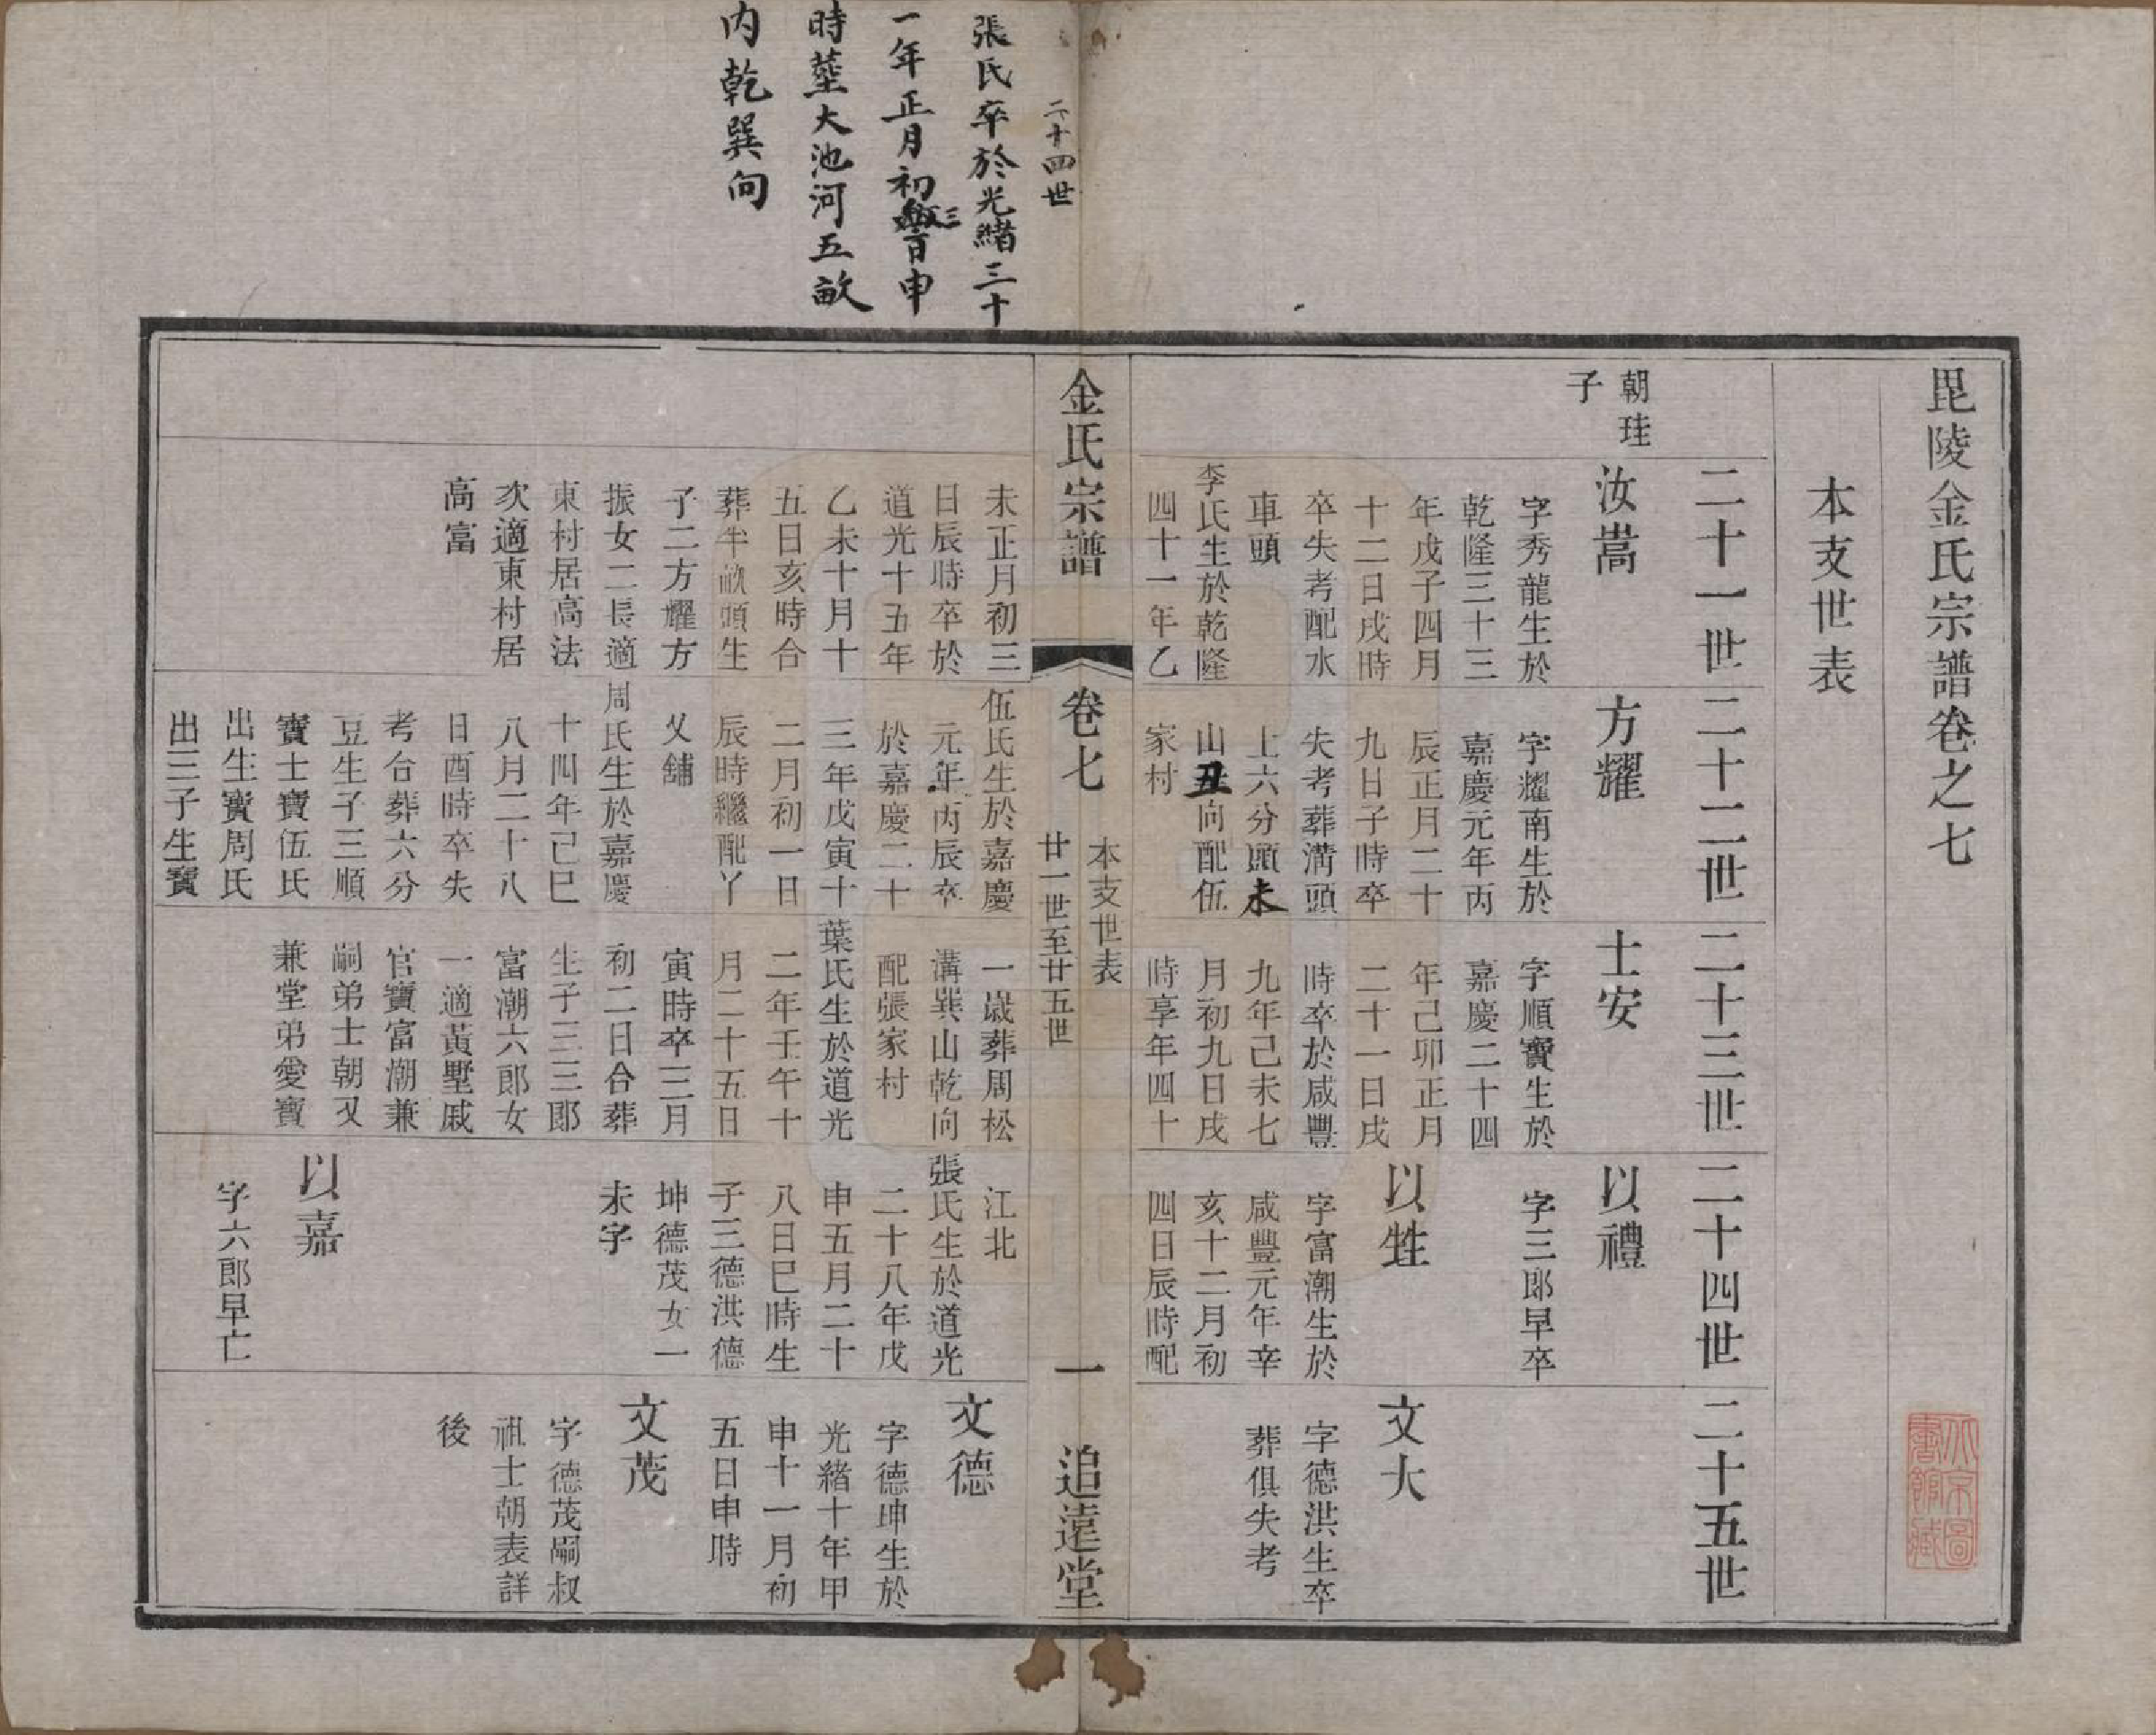 二十四世
張氏卒於光緒三十
一年正月初三日申
時塟大池河五畝
内乾巽向
毘陵金氏宗譜卷之七
本支世表
二十一世
二十二世
二十三世
二十四世
二十五世
朝珪
子
汝嵩
字秀龍生於
乾隆三十三
年戊子四月
十二日戌時
卒失考配水
車頭
李氏生於乾隆
四十一年乙
未正月初三
日辰時卒於
道光十五年
乙未十月十
五日亥時合
葬半畝頭生
子二方耀方
振女二長適
東村居高法
次適東村居
高富
方耀
字耀南生於
嘉慶元年丙
辰正月二十
九日子時卒
失考葬溝頭
上六分頭未
山丑向配伍
家村
伍氏生於嘉慶
元年丙辰卒
於嘉慶二十
三年戊寅十
二月初一日
辰時繼配丫
乂鋪
周氏生於嘉慶
十四年己巳
八月二十八
日酉時卒失
考合葬六分
豆生子三順
寶士寶伍氏
出生寶周氏
出三子生寶
士安
字順寶生於
嘉慶二十四
年己卯正月
二十一日戌
時卒於咸豐
九年己未七
月初九日戌
時享年四十
一歲葬周松
溝巽山乾向
配張家村
葉氏生於道光
二年壬午十
月二十五日
寅時卒三月
初二日合葬
生子三三郎
富潮六郎女
一適黃墅戚
官寶富潮兼
嗣弟士朝又
兼堂弟愛寶
以禮
字三郎早卒
以甡
字富潮生於
咸豐元年辛
亥十二月初
四日辰時配
江北
張氏生於道光
二十八年戊
申五月二十
八日巳時生
子三德洪德
坤德茂女一
未字
以嘉
字六郎早亡
文大
字德洪生卒
葬俱失考
文德
字德坤生於
光緒十年甲
申十一月初
五日申時
文茂
字德茂嗣叔
祖士朝表詳
後
金氏宗譜
卷七
本支世表
廿一世至廿五世
一
追遠堂